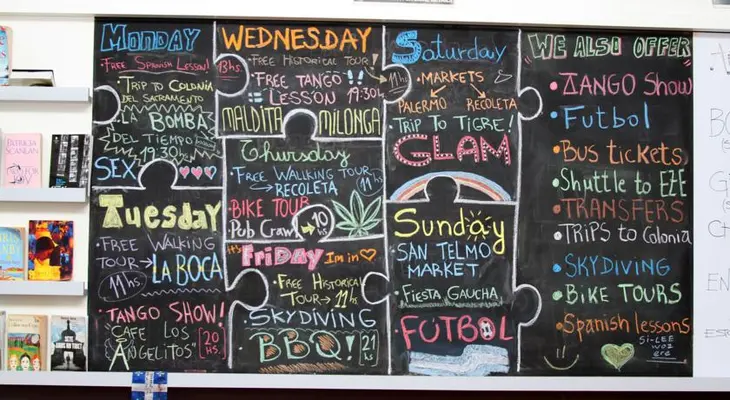 Monday
Free Spanish Lesson!
Trip to Colonia
del Sacramento
LA BOMBA
DEL TIEMPO
19:30hs
SEX
Tuesday
FREE WALKING
TOUR→
11hs
LA BOCA
TANGO SHOW!
"CAFE LOS
ANGELITOS"
20
hs.
WEDNESDAY
FREE Historical Tour!
11hs
FREE TANGO
LESSON 19:30hs
MALDITA MILONGA
Thursday
FREE WALKING TOUR
→RECOLETA
11hs
BIKE TOUR
Pub Crawl
→10hs
It's FRIDAY I'm in
FREE Historical
TOUR→11hs
SKYDIVING
BBQ!
21
hs
Saturday
MARKETS
PALERMO RECOLETA
TRIP TO TIGRE!
GLAM
SUNDAY
SAN TELMO
MARKET
FIESTA GAUCHA
FUTBOL
WE ALSO OFFER
TANGO Show
Futbol
Bus tickets
Shuttle to EZE
TRANSFERS
TRIPS to Colonia
SKYDIVING
BIKE TOURS
Spanish lessons
Si-LEE
woz
ere
PATRICIA
SCANLAN